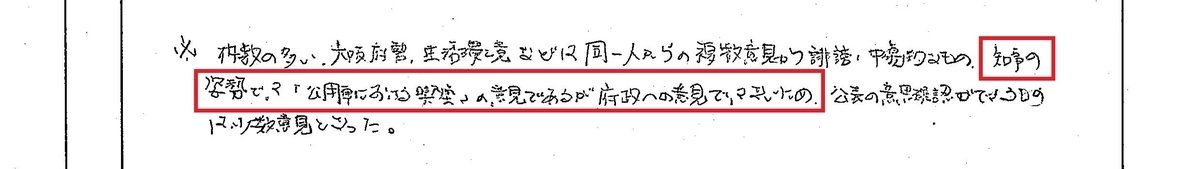 ※ 件数の多い、大阪府警、生活環境などは同一人からの複数意見や誹謗・中傷的なもの、知事の
姿勢で、「公用車における喫煙」の意見であるが府政への意見で、ないため、公表の意思確認ができるもの
は少数意見となった。